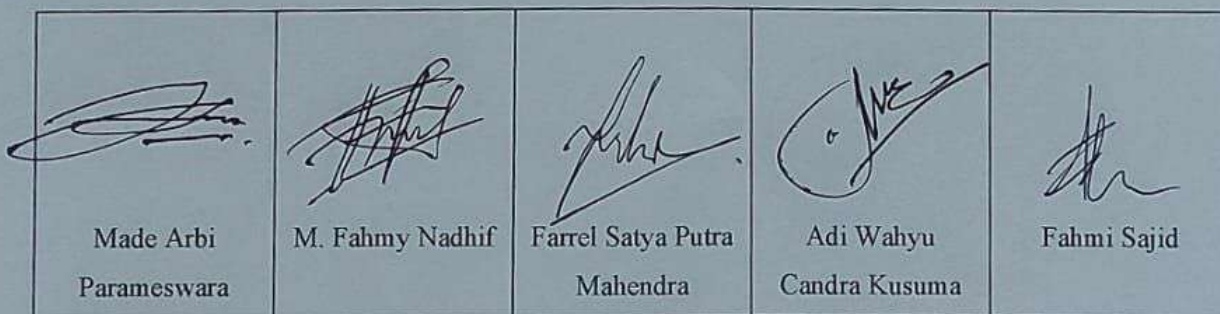 Made Arbi
Parameswara
M. Fahmy Nadhif
Farrel Satya Putra
Mahendra
Adi Wahyu
Candra Kusuma
Fahmi Sajid